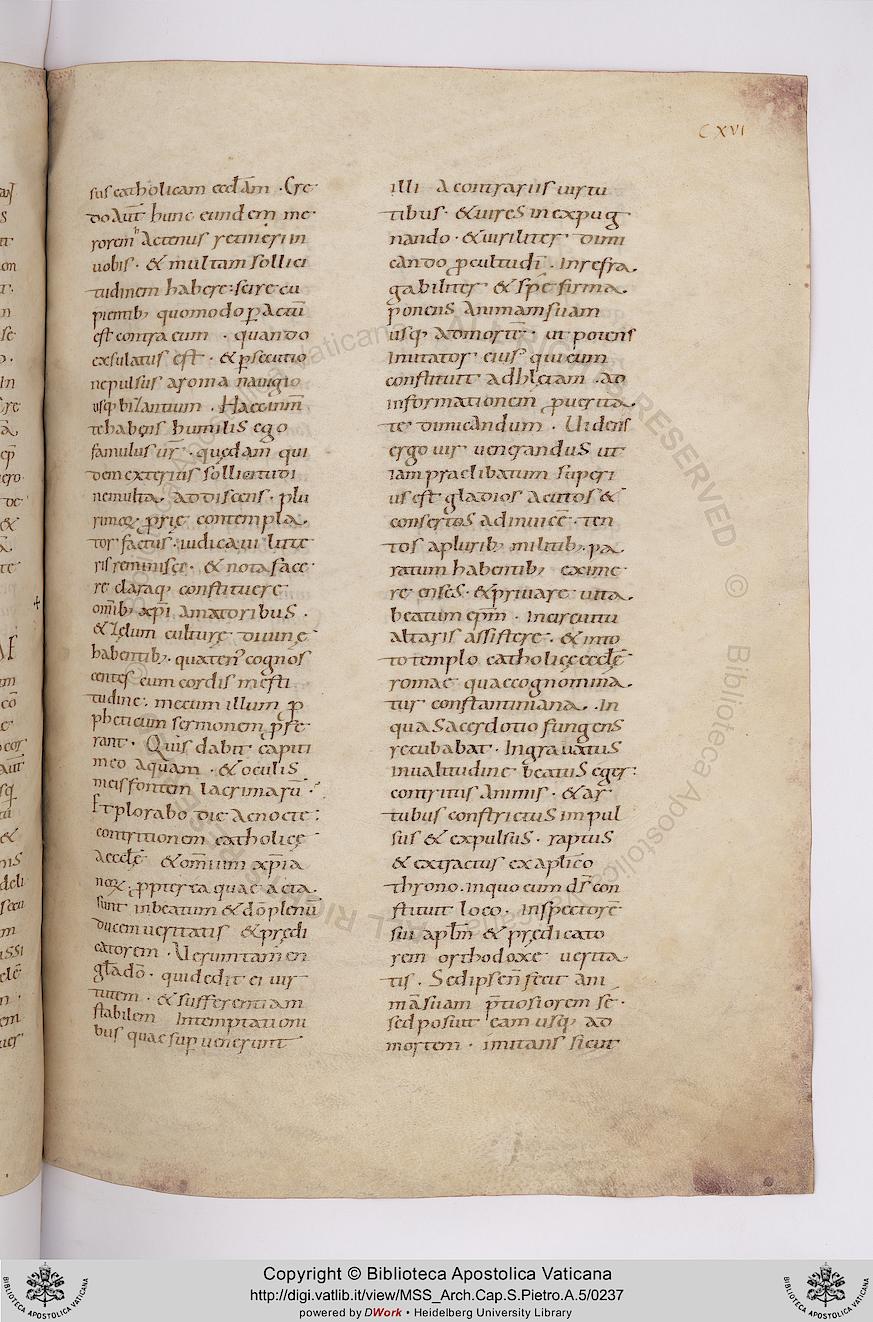 CXVI
sus catholicam eccl̄am · Cre
do aut̄ hunc eundem me
rorem hactenus retineri in
uobis · & multam sollici
tudinem habere: scire cu
pientib; quomodo ꝑactū
est contra eum · quando
exsulatus est · & ꝑsecutio
ne pulsus a roma nauigio
usq; bizantium · Haec inim̄
te habens humilis ego
famulus ur̄ · quędam qui
dem exterius sollicitudi
ne multa · addiscens · plu
rimoꝝ ꝓprie contempla
tor factus · iudicaui litte
ris reminisci · & nota face
re claraq; constituere
om̄ib; xp̄i amatoribus ·
& zelum culturę diuinę
habentib; · quaten' cognos
centes cum cordis mesti
tudine · mecum illum ꝓ
pheticum sermonem ꝓfe
rant · Quis dabit capiti
meo aquam · & oculis
meis fontem lacrimarū ·
Et plorabo die ac nocte :
contritionem catholicę
aeccl̄ę & om̄ium xp̄ia
noꝝ · ꝓpter ea quae acta
sunt in beatum & dō plenū
ducem ueritatis & prędi
catorem · Uerumtamen
gl̄a dō · qui dedit ei uir
tutem · & sufferentiam
stabilem In temptationi
bus quae suꝑuenerunt
illi a contrariis uirtu
tibus · & uires inexpug
nando · & uiriliter dimi
cando ꝓ cultu dī · Inrefra
gabiliter & spē firma
ponens animam suam
usq; ad mortē · ut potens
imitator eius qui eum
constituit ad hl̄eiam · ad
informationem ꝓ uerita
te dimicandum · Uidens
ergo uir uenerandus ut
iam praelibatum superi
us est gladios acutos &
consertos ad inuicē · ten
tos a plurib; militib; · pa
ratum habentib; exime
re enses · & priuare uita
beatum ep̄m · In circuitu
altaris assistere · & in to
to templo catholicę eccl̄ę
romae quae cognomina
tur constantiniana · In
qua sacerdotio fungens
recubabat · Ingrauatus
inualitudine beatus eger :
contritus animis · & ar
tubus constrictus impul
sus & expulsus · raptus
& extractus ex aplico
throno · in quo eum dr̄ con
stituit loco · Inspectorē
sui apl̄m & prędicato
rem orthodoxe uerita
tis · Sed ipse n̄ fecit ani
mā suam p̄tiosiorem se ·
sed posuit eam usq; ad
mortem · imitans sicut
Copyright © Biblioteca Apostolica Vaticana
http://digi.vatlib.it/view/MSS_Arch.Cap.S.Pietro.A.5/0237
powered by DWork • Heidelberg University Library